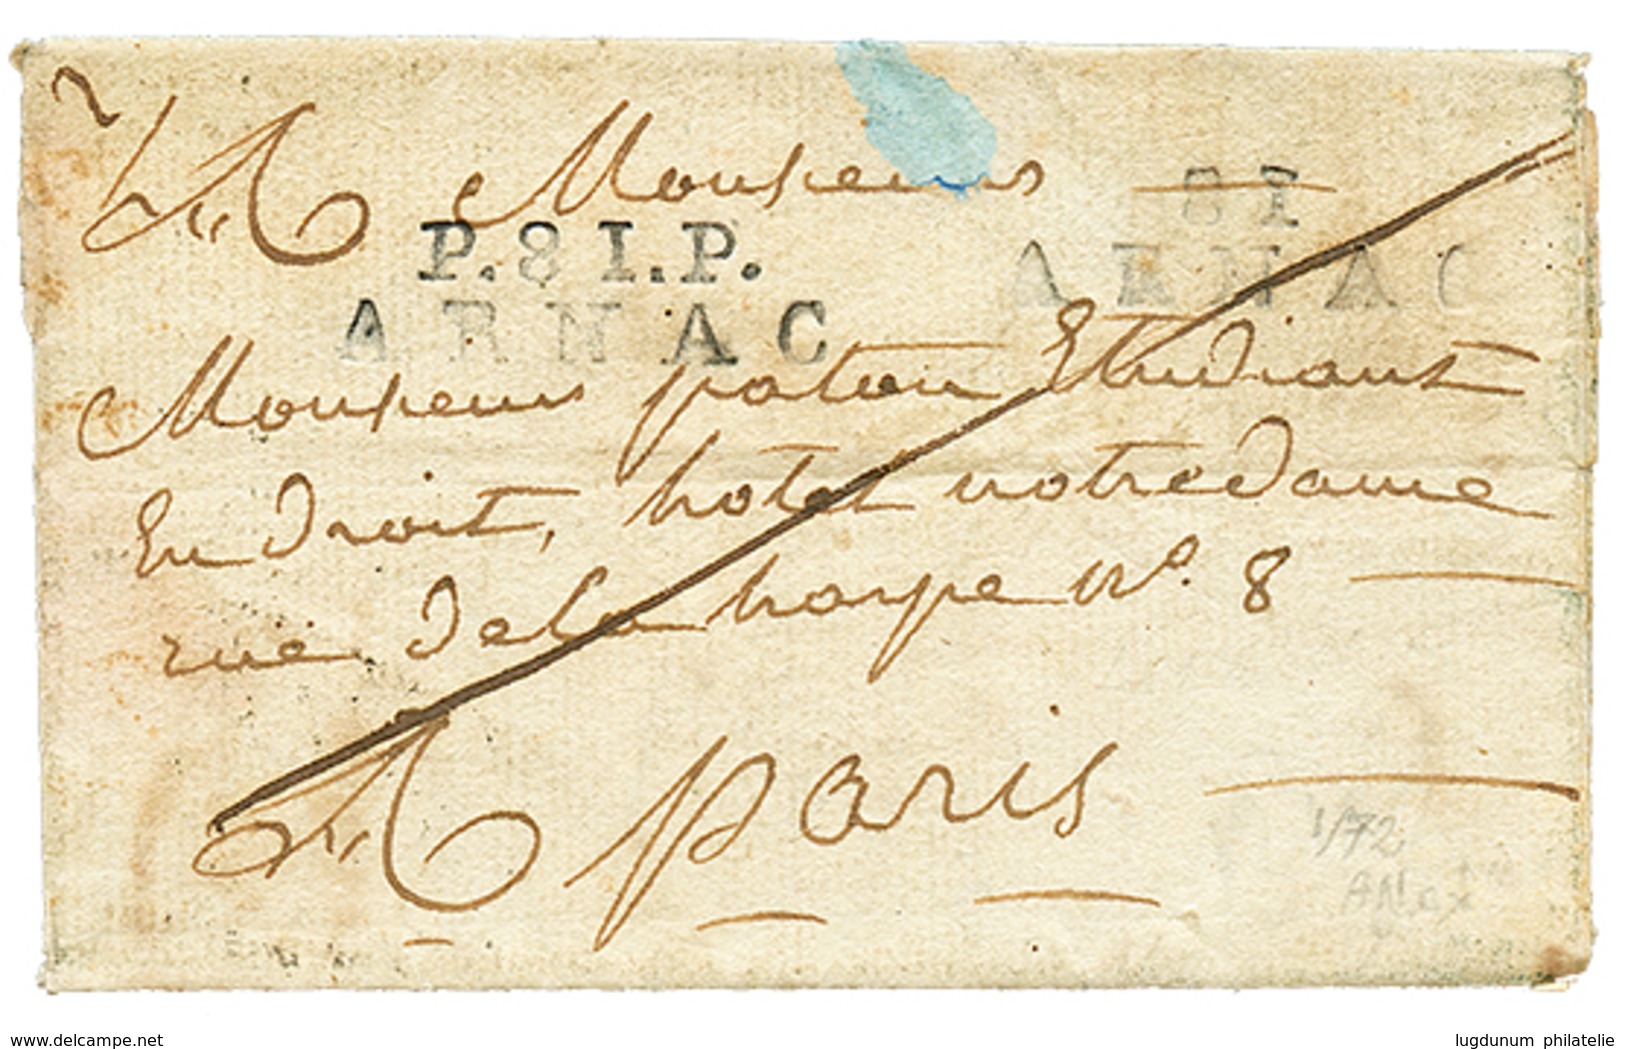 A Monsieur
81
P.81.P.
ARNAC
ARNAC
Monsieur paton Etudiant
En Droit, hotel notredame
rue de la harpe N°. 8
A paris
1/72
www.delcampe.net
lugdunum philatelie